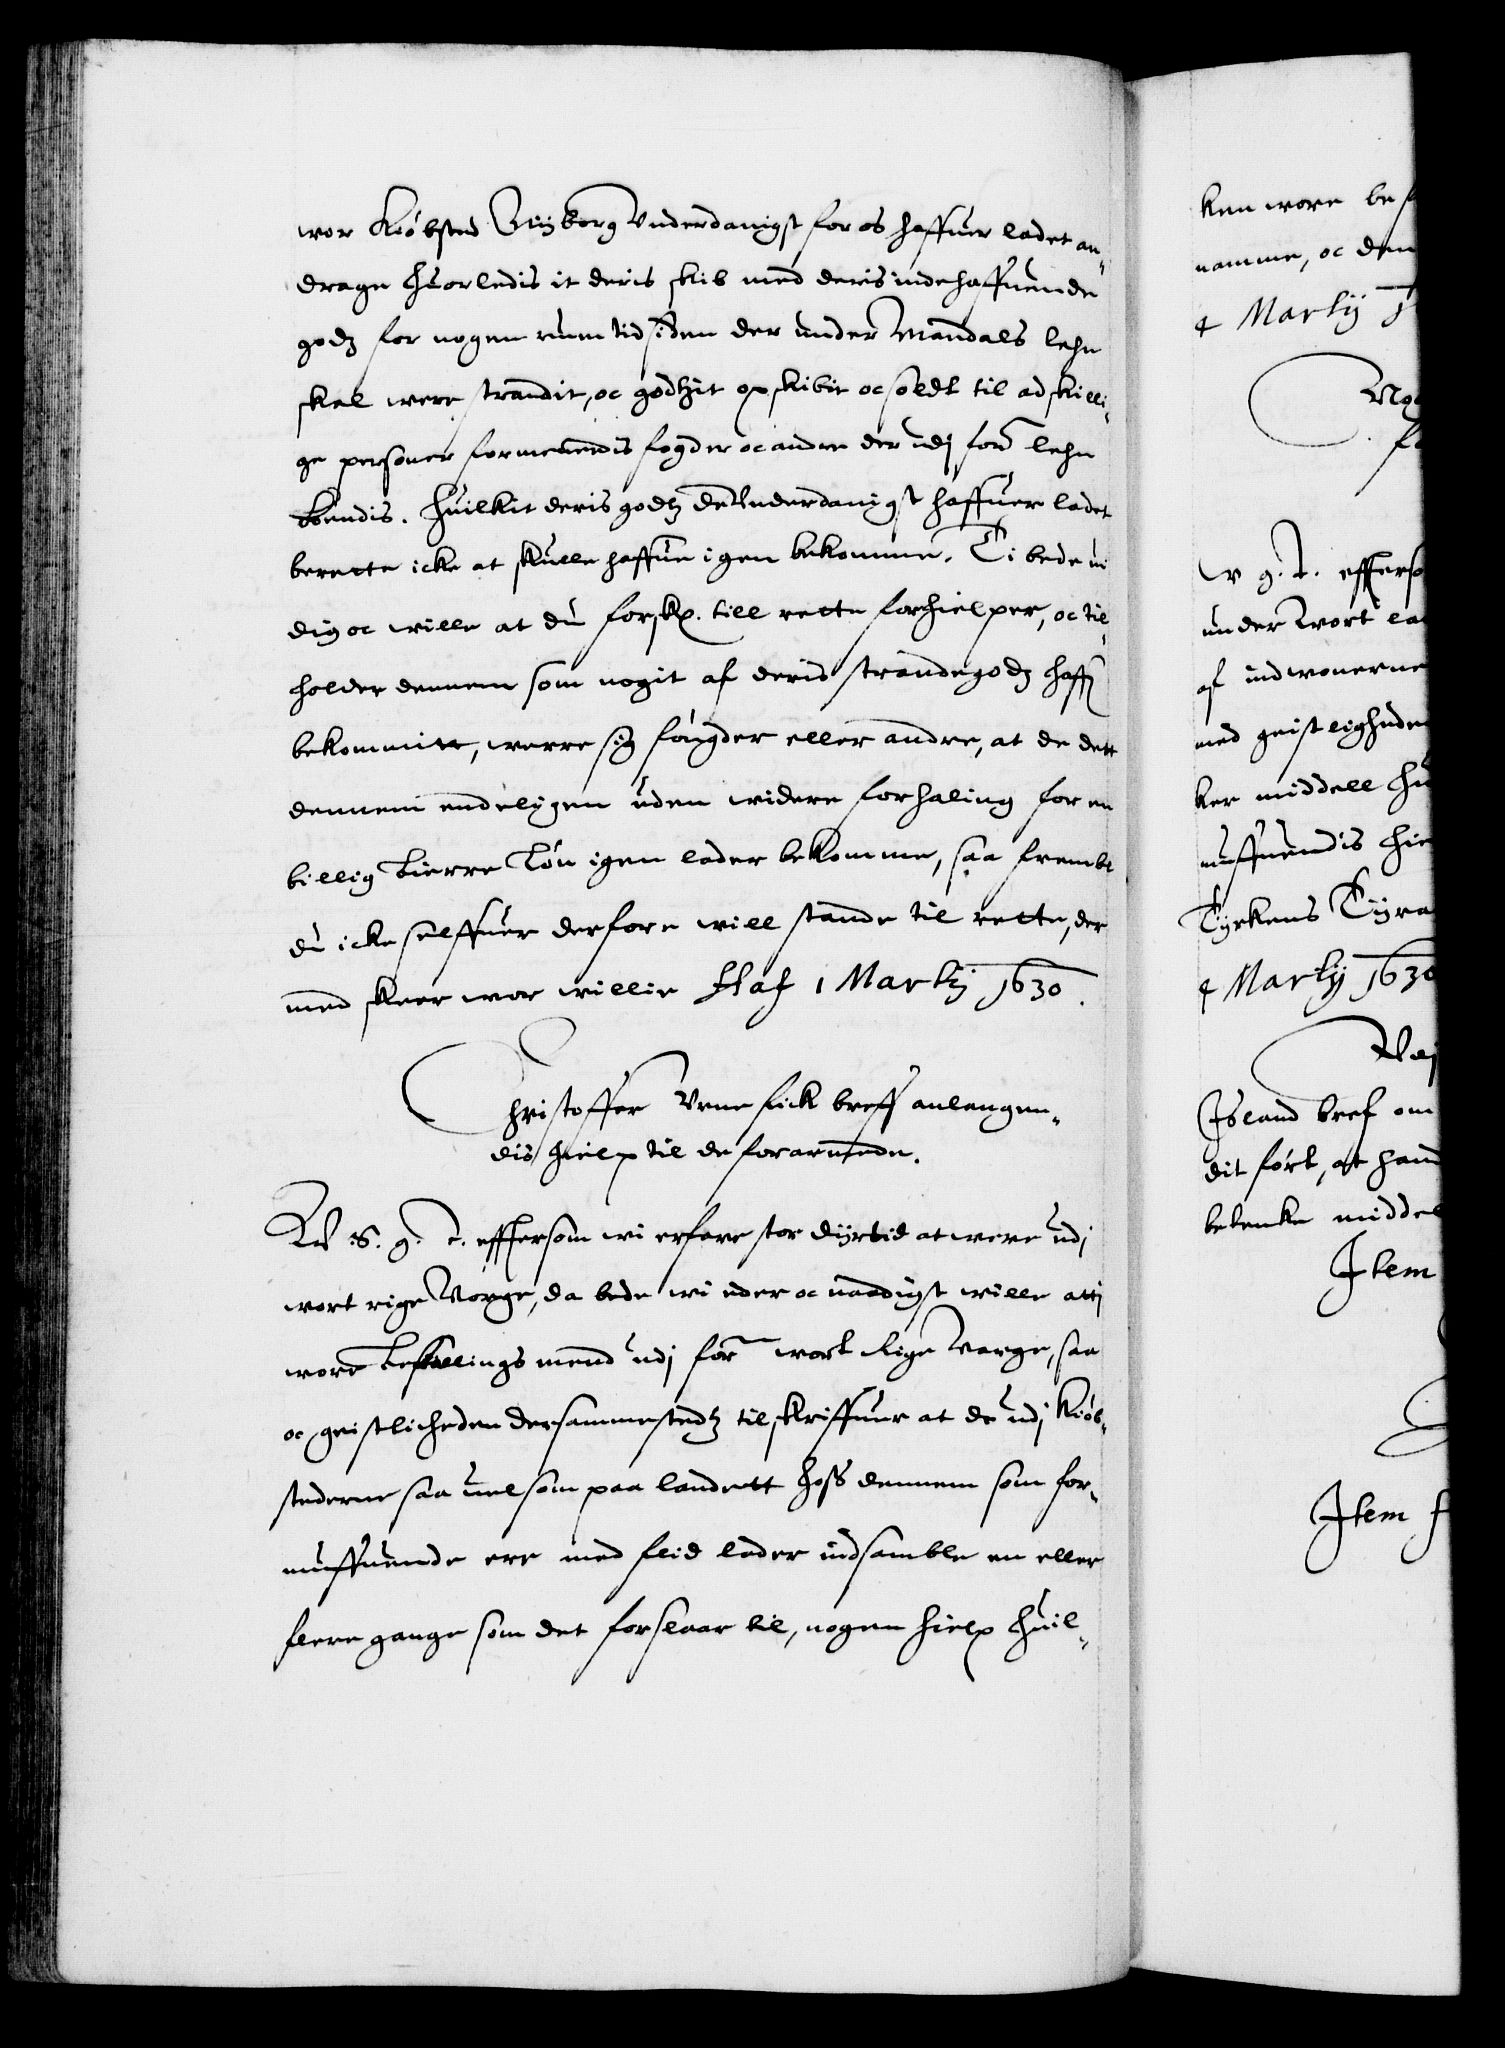 wor Kiøbsted Wiiborg Vnderdanigst for os haffuer ladet an-
drage huorledis it deris skib med deris indehaffuende
godz for nogen rum tid siden der under Mandals lehn
skal were strandit, oc godtzit opskibit oc soldt til adskilli-
ge personer formenendis fogder oc andre der udj for: lehn
boendis. Huilkit deris godtz de Vnderdanigst haffuer ladet
berette icke at skulle haffue igen bekomme. Ti bede wi
dig oc wille at du forskp. till rette forhielper, oc til-
holder dennem som nogit af deris strandegodz haff:
bekommitt, werre sig fougder eller andre, at de dett
dennem endeligen uden widere forhaling for en
billig bierre løn igen lader bekomme, saa frembt
du icke selffuer derfore will stande til rette, der
med skeer wor willie Haf 1 Martij 1630.
Christoffer Vrne fick breff anlangen-
dis hielp til de forarmede.
W S. g. t. effersom wi erfare stor dyrtid at were udj
wort rige Norge, da bede wi eder oc naadigst wille atti
wore befallings mend udj for: wort Rige Norge, saa
oc geistlicheden dersammestedtz tilskriffuer at de udj Kiøb-
stederne saa uel som paa landett hoss dennem som for-
muffuende ere med flid lader indsamble en eller
flere gange som det forslaar til, nogen hielp huil-
ken wore bef
namme, oc dem
4 Martij 1
W g. t. efferso
under Wort la
af indwonerne
med geistligheden
ker middell hu
muffuendis hie
Tyrkens Tyra
4 Martij 1630
Island bref om
dit ført, at hand
betenke middel
Item
Item f